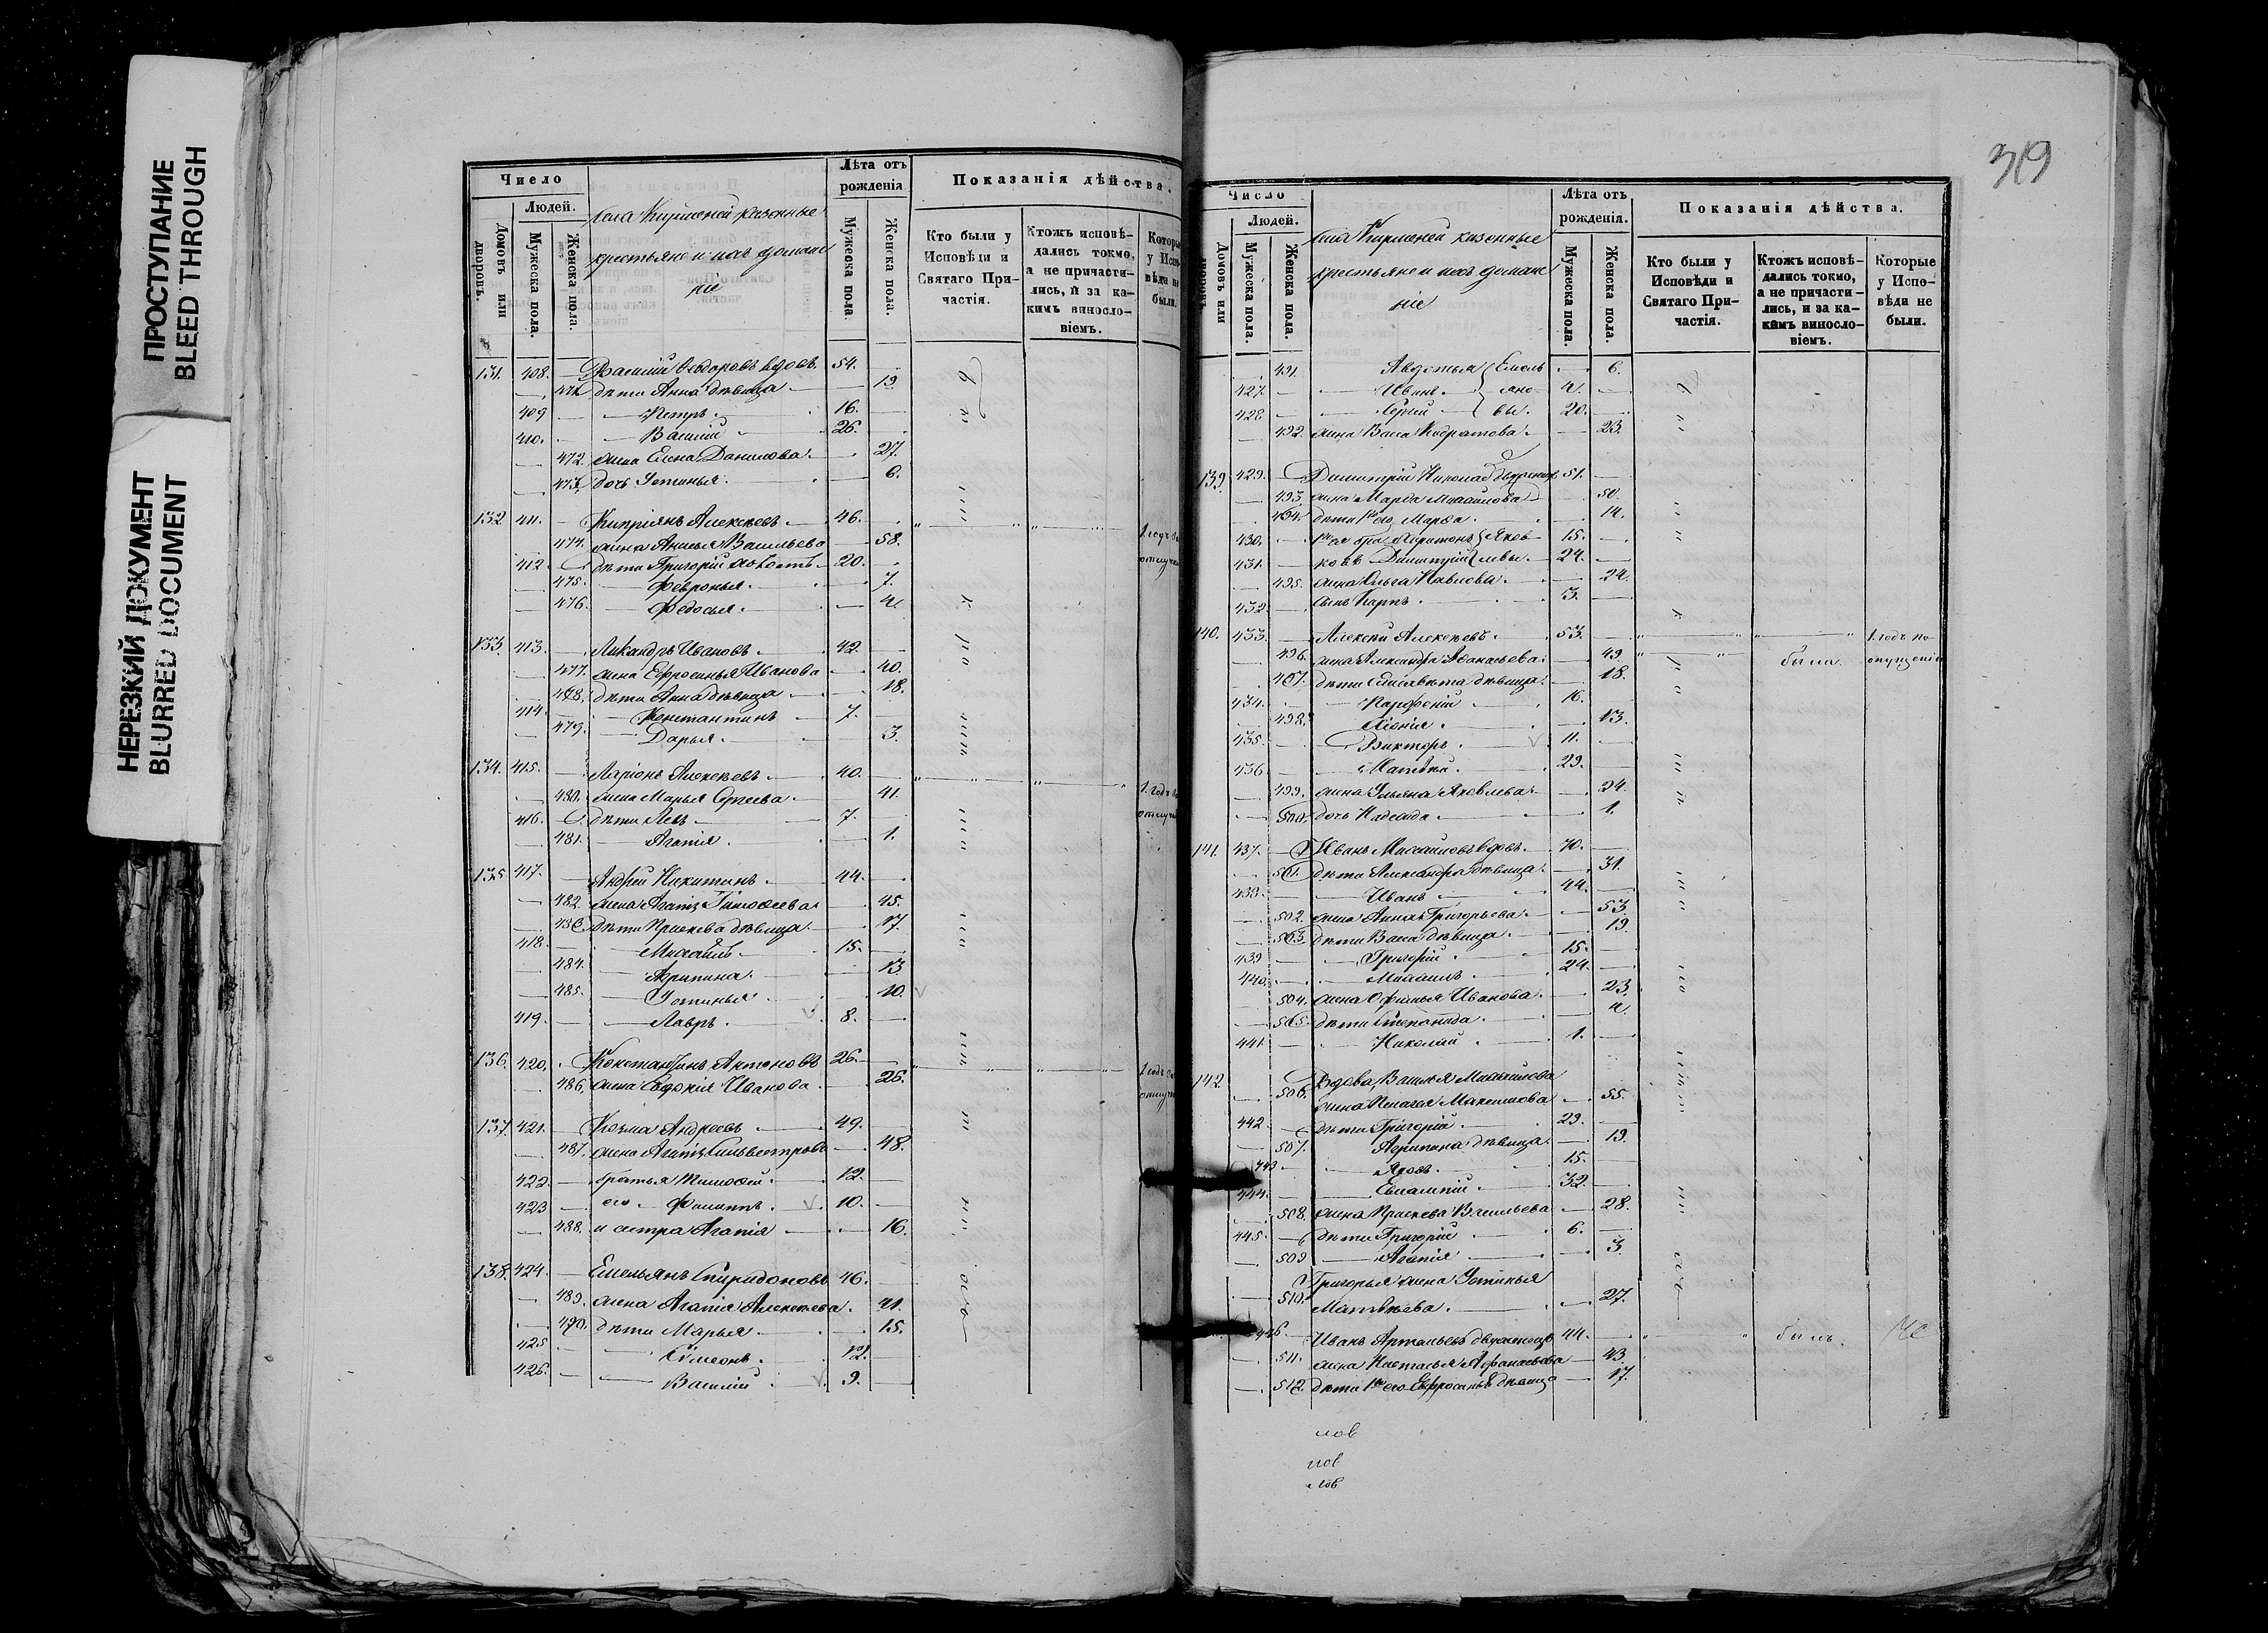 ПРОСТУПАНИЕ
BLEED THROUGH
НЕРЕЗКИЙ ДОКУМЕНТ
BLURRED DOCUMENT
Число
Людей.
Домовъ или дворовъ.
Мужеска пола.
Женска пола.
села казенные
крестьяне и ихъ домаш
ніе
Лѣта отъ рожденія
Мужеска пола
Женска пола.
Показанія дѣйства.
Кто были у Исповѣди и Святаго Причастія.
Ктожъ исповѣдались токмо, а не причастились, и за какимъ винословіемъ.
131. 408. Василій Ѳедоровъ вдовъ 54.
дѣти Анна дѣвица 19.
409 Петръ. 16.
410. Василій 26.
472. жена Елена Данилова 27.
473. дочь Устинья 6.
132 411. Кипріянъ Алексѣевъ 46.
474. жена Анисья Васильева 58.
412 дѣти Григорій холостъ 20.
475. Февронья 7.
476. Федосья 4
133. 413. Никандръ Ивановъ 42.
477. жена Ефросинья Иванова 40.
478. дѣти Анна дѣвица 18.
414. Константинъ 7.
479. Дарья 3.
134. 415. Ларіонъ Алексѣевъ 40.
480. жена Марья Сергеева 41.
416. дѣти Левъ 7.
481. Агапія 1.
135 417. Андрей Никитинъ 44.
482. жена Агапія Тимофеева 45.
483. дѣти Прасковья дѣвица 17.
418. Михаилъ 15.
484. Агрипина 13
485. Устинья 10.
419. Лавръ 8.
136. 420. Константинъ Антоновъ 26.
486. жена Евдокія Иванова 26.
137. 421. Козма Андреевъ 49.
487. жена Агапія Сильвестрова 48.
422. братья Тимофей 12.
423 его Филиппъ 10.
488. и сестра Агапія 16.
138. 424. Емельянъ Спиридоновъ 46.
489. жена Агапія Алексѣева 41.
490. дѣти Марья 15.
425. Симеонъ 12.
426. Василій 9.
319
Число
Людей.
Домовъ или дворовъ.
Мужеска пола.
Женска пола.
села казенные
крестьяне и ихъ домаш
ніе
Лѣта отъ рожденія.
Мужеска пола.
Женска пола.
Показанія дѣйства.
Кто были у Исповѣди и Святаго Причастія.
Ктожъ исповѣдались токмо, а не причастились, и за какимъ винословіемъ.
Которые у Исповѣди не были.
491. Авдотья Емель 6.
427. Иванъ яно 4.
428. Сергій вы. 20.
492. жена Васса Кодратова 23.
139. 429. Димитрій Николаевъ 51.
493. жена Марфа Михайлова 50.
494. дѣти его Марфа 14.
430. Яков 15.
431. Димитрій левы 24.
495. жена Ольга Павлова 24.
432. сынъ Карпъ 3.
140. 433. Алексѣй Алексѣевъ 53. 1. годъ по
496. жена Александра Афанасьева 49 была опущенію
497. дѣти Елисавета дѣвица 18.
434. Парфеній 16.
498. Хіонія 13.
435. Викторъ 11.
436. Матвѣй 29.
499. жена Ульяна Яковлева 24.
500. дочь Надежда 1.
141. 437. Иванъ Михайловъ вдовъ 70.
501. дѣти Александра дѣвица 31.
438. Иванъ 44.
502. жена Анна Григорьева 53
503. дѣти Васса дѣвица 19.
439 Григорій 15.
440. Михаилъ 24.
504. жена Офимья Иванова 23
505. дѣти Степанида 4.
441. Николай 1.
142. Вдова, Василья Михайлова
506. жена Пелагея Максимова 55.
442. дѣти Григорій 29.
507. Агрипина дѣвица 19.
443 Яковъ 15.
444. Евлампій 32.
508. жена Прасковья Васильева 28.
445. дѣти Григорій 6.
509 Агапія 3.
Григорья жена Устинья
510. Матвѣева 27.
446 Иванъ Артемьевъ двуженецъ 44. былъ
511. жена Настасья Афанасьева 43
512. дѣти его Ефросинья дѣвица 17.
лов
лов
лов